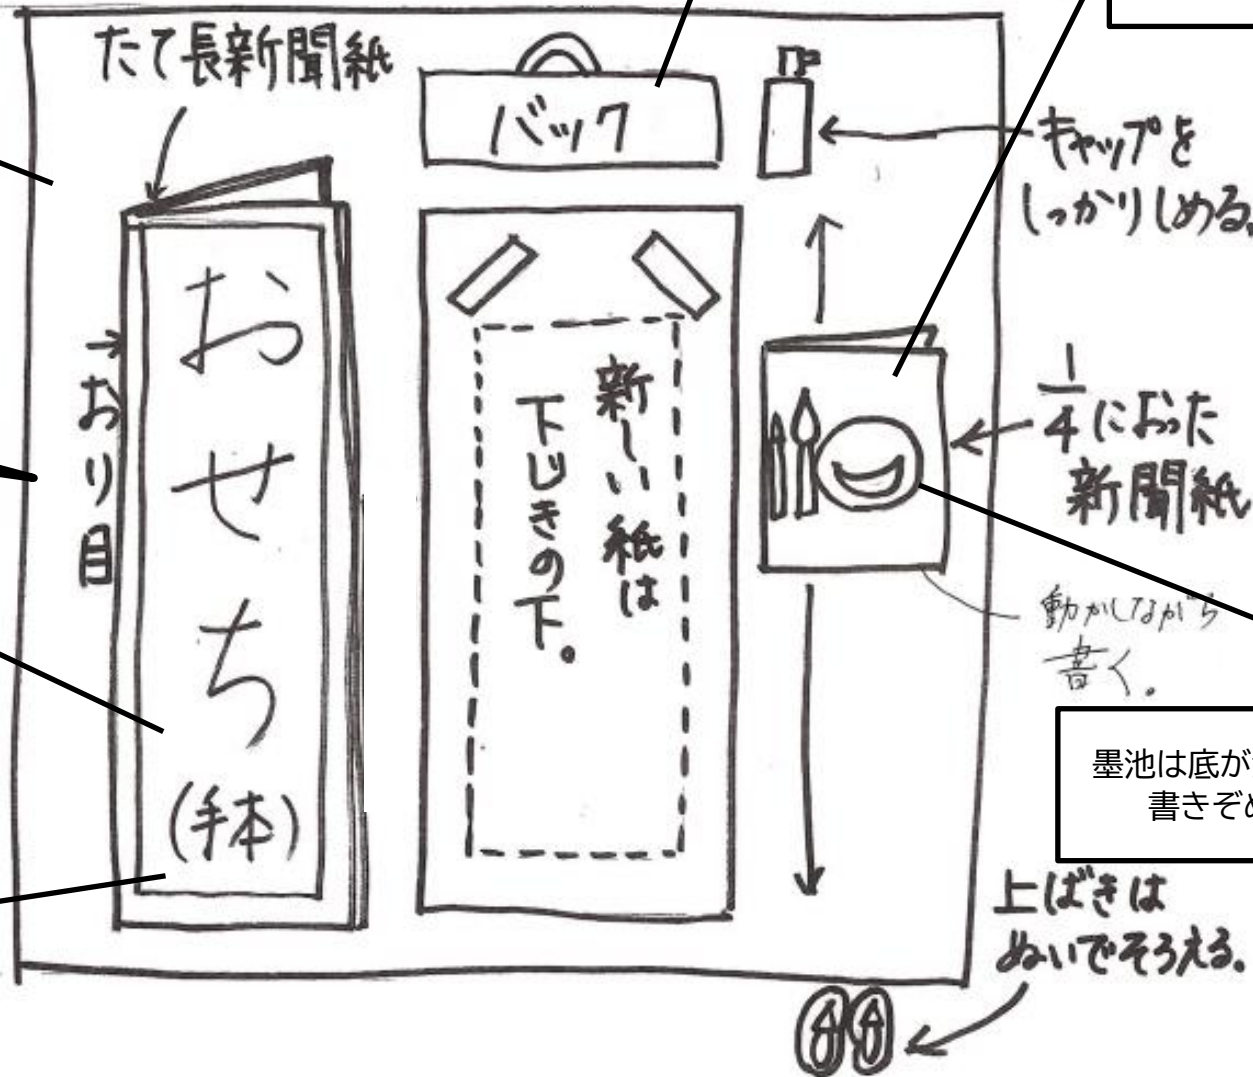 たて長新聞紙
バック
キャップを
しっかりしめる。
→おり目
おせち
(手本)
新しい紙は
下じきの下。
1/4におった
新聞紙
動かしながら
書く。
墨池は底が
書きぞめ
上ばきは
ぬいでそろえる。